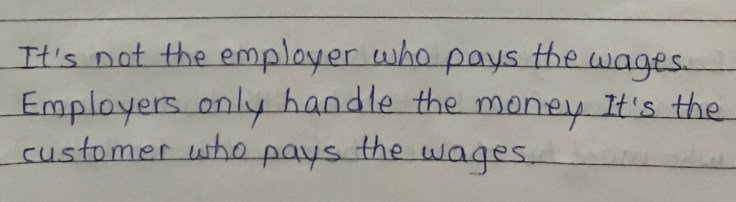 It's not the employer who pays the wages.
Employers only handle the money. It's the
customer who pays the wages.